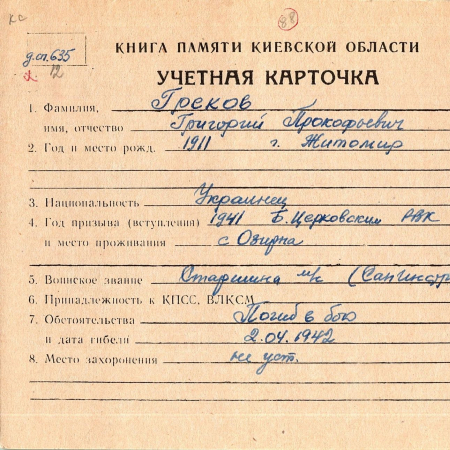 КС
88
д.сп.635
12
КНИГА ПАМЯТИ КИЕВСКОЙ ОБЛАСТИ
УЧЕТНАЯ КАРТОЧКА
1. Фамилия, Греков
имя, отчество Григорий Прокофьевич
2. Год и место рожд. 1911 г. Житомир
3. Национальность Украинец
4. Год призыва (вступления) 1941 Б. Церковским РВК
и место проживания с Озирна
5. Воинское звание Старшина м/с (Санинстр
6. Принадлежность к КПСС, ВЛКСМ
7. Обстоятельства Погиб в бою
и дата гибели 2.04.1942
8. Место захоронения не уст.